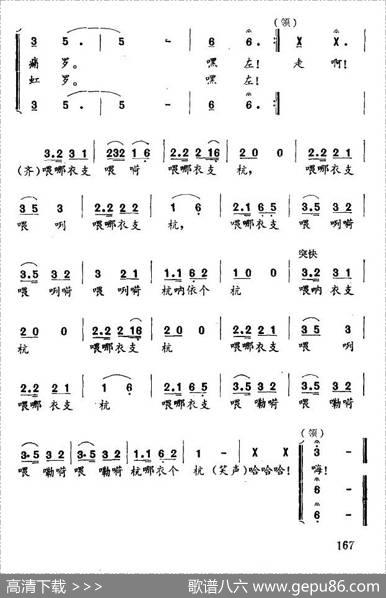 (领)
3 5. | 5 - | 6 6. :| X X. |
痛 罗。 嘿 左! 走 啊!
虹 罗。 嘿 左!
3 5. | 5 - | 6 6. :|
3.2 3 1 | 232 1 6 | 2.2 2 16 | 2 0 0 | 2.2 2 1 |
(齐)喂哪衣支 喂 嗬 喂哪衣支 杭, 喂哪衣支
3 5 3 | 2.2 2 2 | 1 6 | 2.1 6 5 | 3.5 3 2 |
喂 咧 喂哪衣支 杭, 喂哪衣支 喂 咧嗬
突快
3.5 3 2 | 3 2 2 1 | 1.1 6 2 | 1 0 0 | 3.2 3 1 |
喂 咧嗬 喂 咧嗬 杭呐依个 杭 喂呐衣支
2 0 0 | 2.2 2 16 | 2 0 0 | 2.2 2 1 | 3 5 3 |
杭 喂哪衣支 杭 喂哪衣支 喂 咧
2.2 2 1 | 1 6. | 2.1 6 5 | 3.5 3 2 | 3.5 3 2 |
喂哪衣支 杭 喂哪衣支 喂 嘞嗬 喂 嘞嗬
(领)
3.5 3 2 | 3.5 3 2 | 1.1 6 2 | 1 - | X X | 3 -
喂 嘞嗬 喂 嘞嗬 杭哪衣个 杭 (笑声)哈哈哈! 嗨!
6 -
6 -
167
高清下载 >>> 歌谱八六 www.gepu86.com